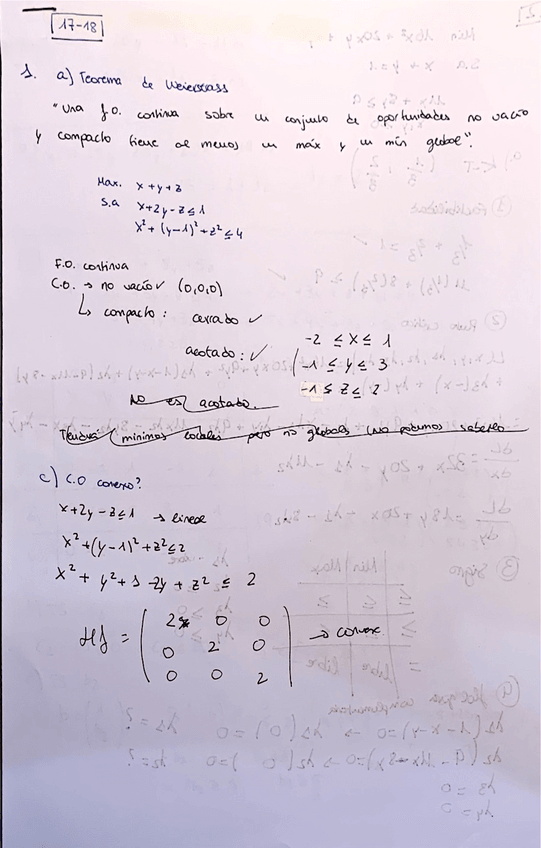 17-18
1. a) Teorema de Weierstrass
"Una f.O. continua sobre un conjunto de oportunidades no vacío
y compacto tiene al menos un máx y un mín global".
Max. x+y+z
S.a x+2y-z≤1
x²+(y-1)²+z²≤4
F.O. continua
C.O. → no vacío ✓ (0,0,0)
↳ compacto: cerrado ✓
acotado: ✓
-2 ≤ x ≤ 1
-1 ≤ y ≤ 3
-1 ≤ z ≤ 2
No es acotado.
Tendrá mínimos locales pero no globales (no podemos saberlo
c) C.O convexo?
x+2y-z≤1 → lineal
x²+(y-1)²+z²≤2
x²+y²+1-2y+z² ≤ 2
Hf = ( 2 0 0
0 2 0
0 0 2 ) → convex